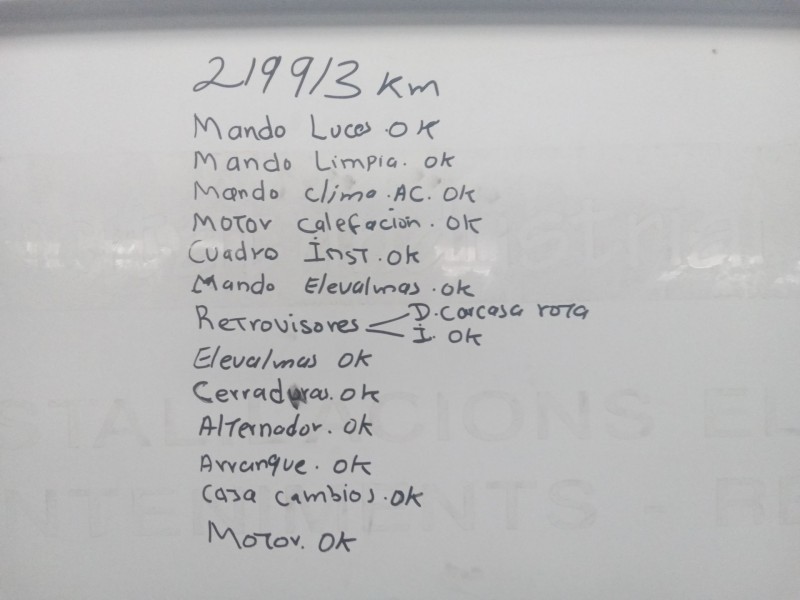 219913 km
Mando Luces. OK
Mando Limpia. OK
Mando clima. AC. OK
Motor Calefacion. OK
Cuadro Inst. OK
Mando Elevalmas. OK
Retrovisores D. Carcasa rota
I. OK
Elevalmas OK
Cerraduras. OK
Alternador. OK
Arranque. OK
Casa Cambios. OK
Motor. OK
STAL·LACIONS EL
NTENIMENTS - RE